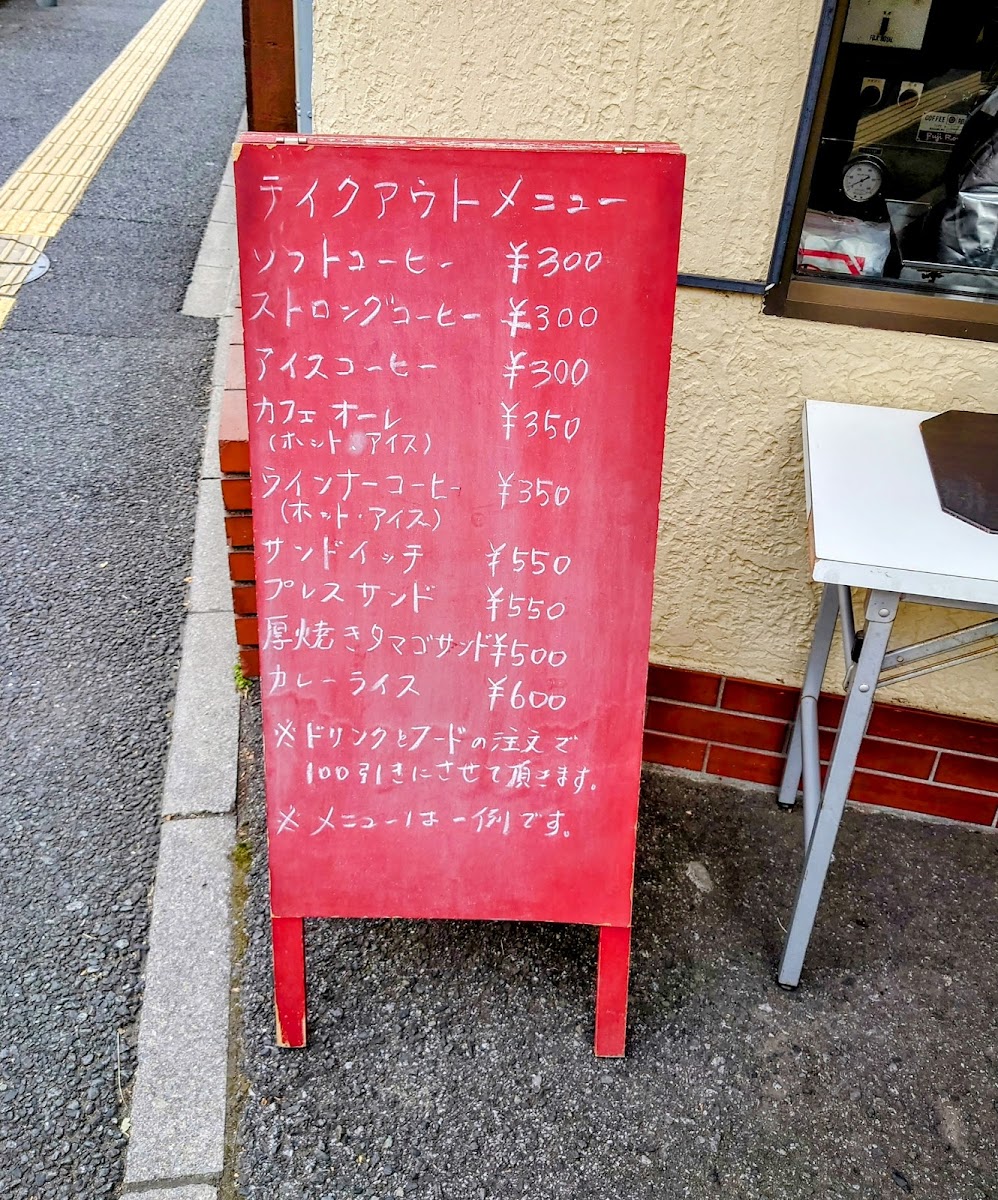 テイクアウトメニュー
ソフトコーヒー ¥300
ストロングコーヒー ¥300
アイスコーヒー ¥300
カフェオーレ ¥350
(ホット・アイス)
ウインナーコーヒー ¥350
(ホット・アイス)
サンドイッチ ¥550
プレスサンド ¥550
厚焼きタマゴサンド ¥500
カレーライス ¥600
※ドリンクとフードの注文で
100引きにさせて頂きます。
※メニューは一例です。
FUJI ROYAL
COFFEE
Fuji